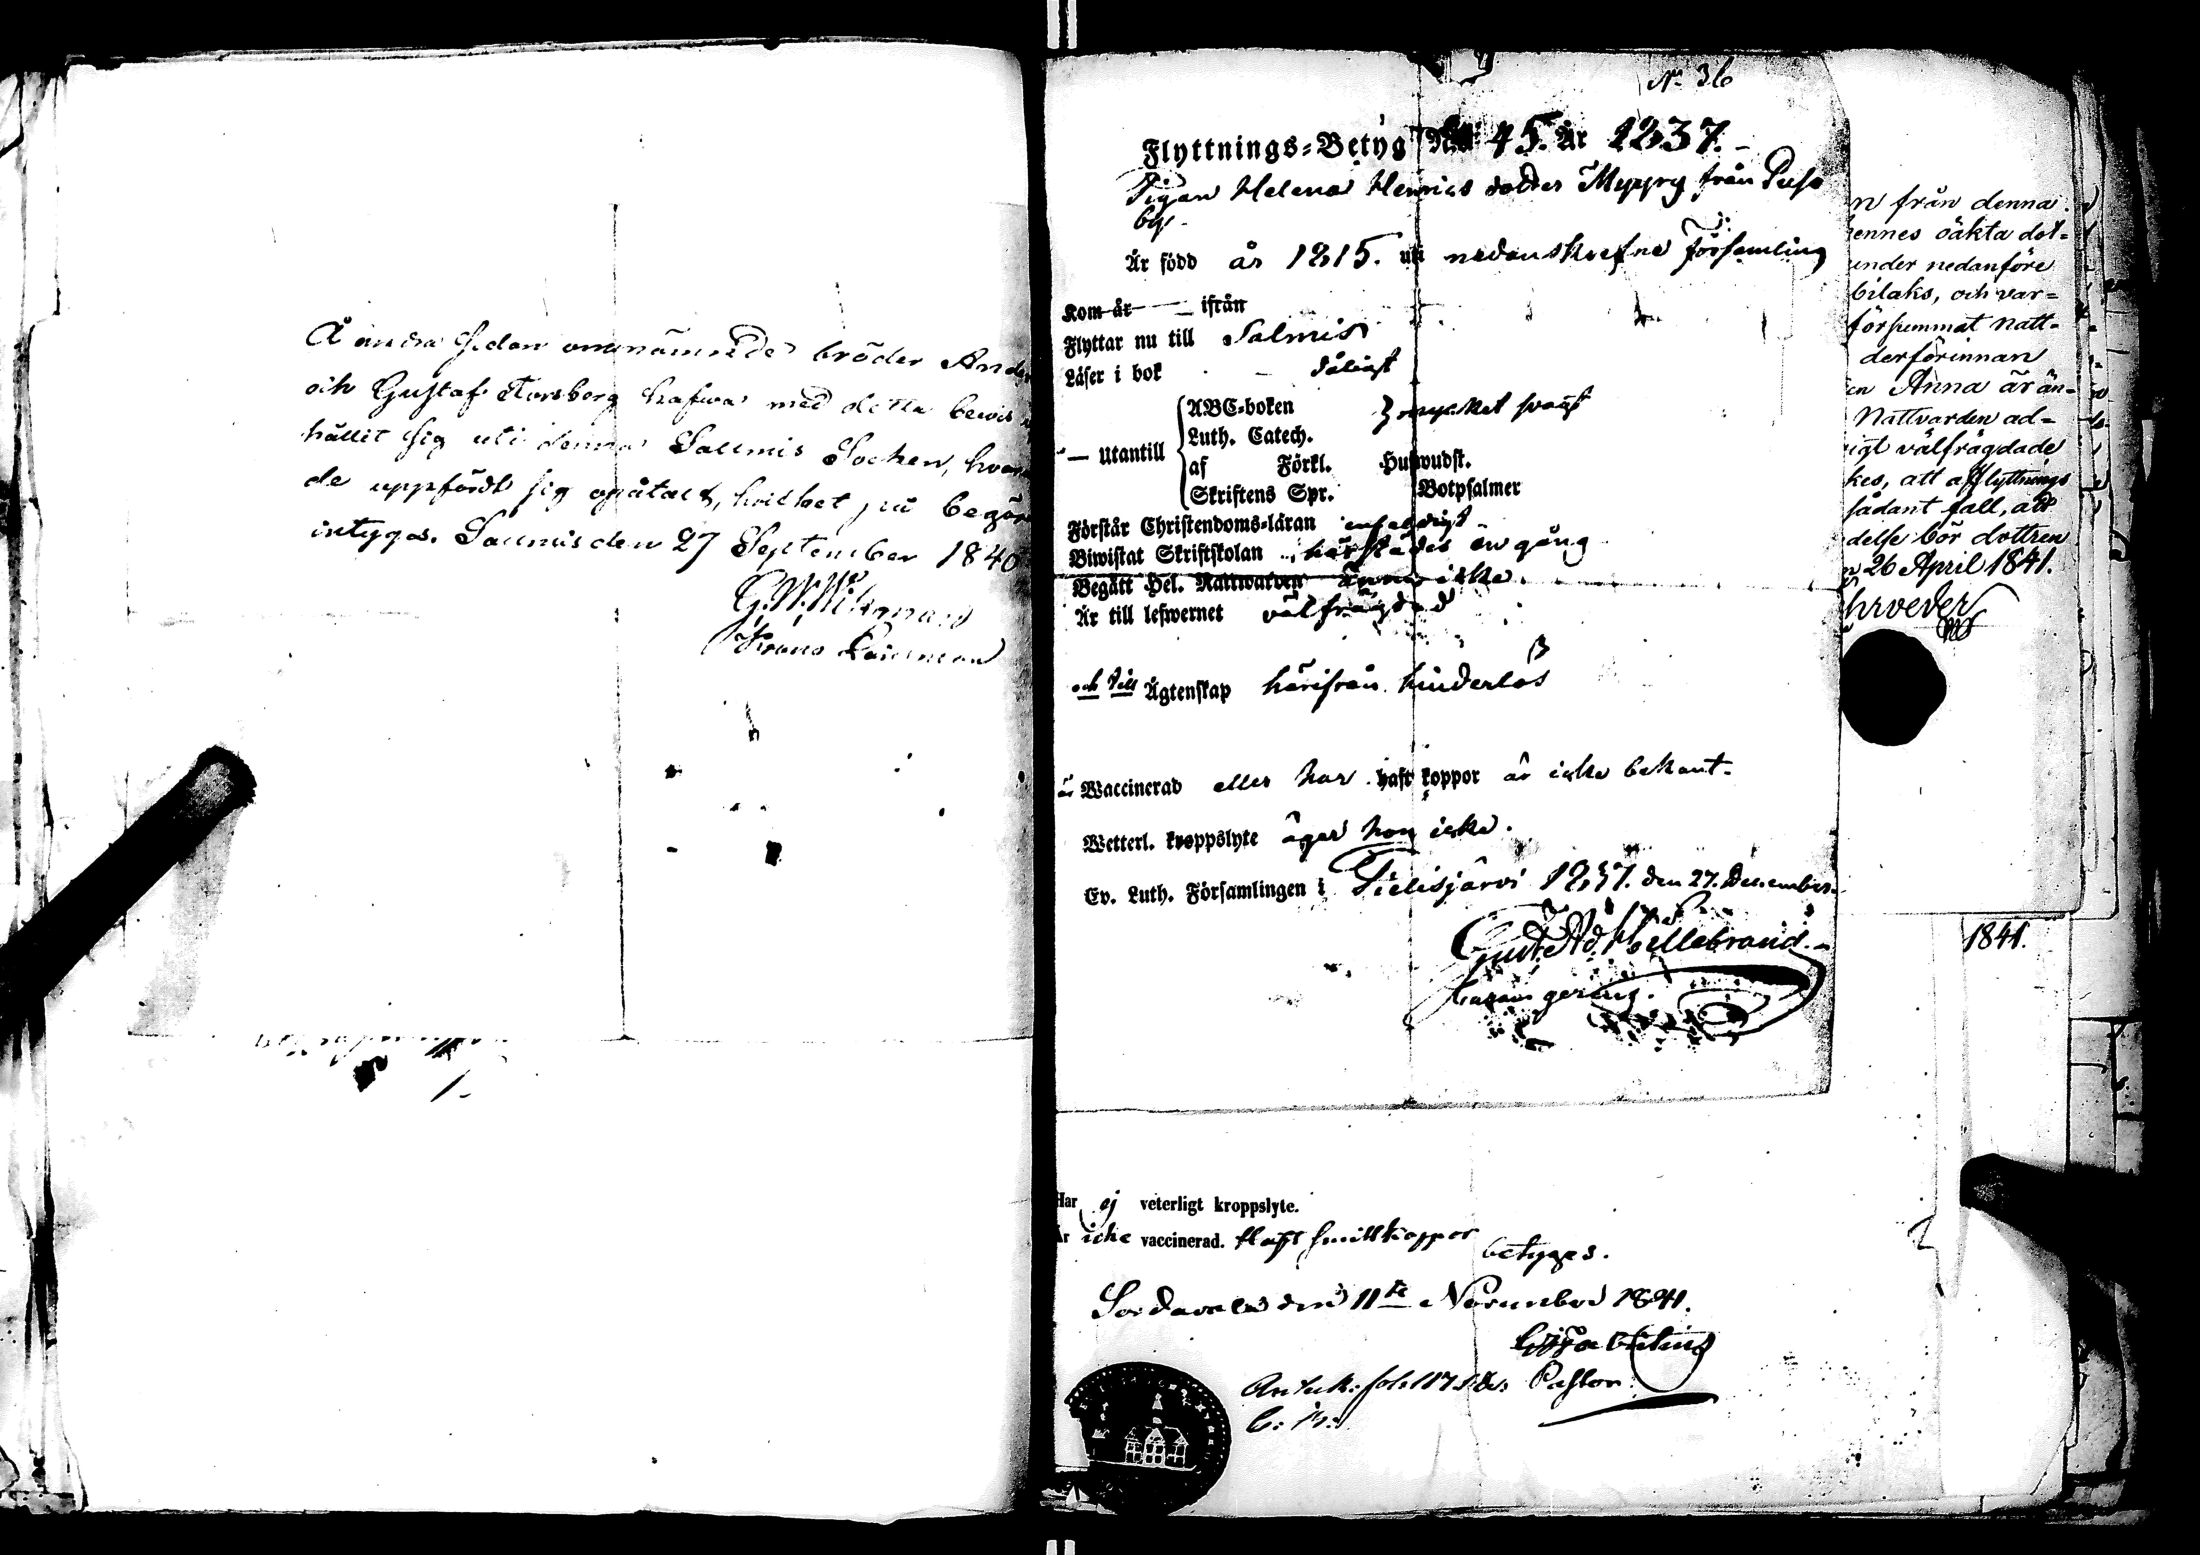 Å andra sidan omnämnde bröder And
och Gustaf Torsberg hafwa med detta bewis
hållit sig uti denna Salmis Sochen, hwar
de uppfördt sig opåtalt, hvilket på begär
intygas. Salmis den 27 September 1840
Krono Länsman
No 36
Flyttnings-Betyg No 45. År 1837.
Pigan Helena Henrics dotter Myyry från
by.
Är född år 1815. uti nedanskrefne Församling
Kom år — ifrån
Flyttar nu till Salmis
Läser i bok dåligt
— Utantill
ABC-boken
Luth. Catech.
mycket svagt
af Förkl. Huswudst.
Skriftens Spr. Botpsalmer
Förstår Christendoms-läran enfaldigt
Biwistat Skriftskolan härstädes en gång
Begått Hel. Nattwarden ännu icke.
Är till lefwernet välfrägdad
och till Ägtenskap härifrån hinderlös
Waccinerad eller har haft koppor är icke bekant.
Wetterl. kroppslyte äger hon icke.
Ev. Luth. Församlingen i Pielisjärvi 1837. den 27. December.
Gust. Ad. Hellebrand.
n från denna
ennes oäkta dot=
under nedanföre
bilaks, och var=
försummat natt=
derförinnan
en Anna är än=
Nattvarden ad=
igt välfrägdade
kes, att afflyttnings
sådant fall, att
delse bör dottren
26 April 1841.
1841.
Har ej veterligt kroppslyte.
Är icke vaccinerad. Haft Smittkoppor
betygas.
Sordavala den 11te November 1841.
Pastor